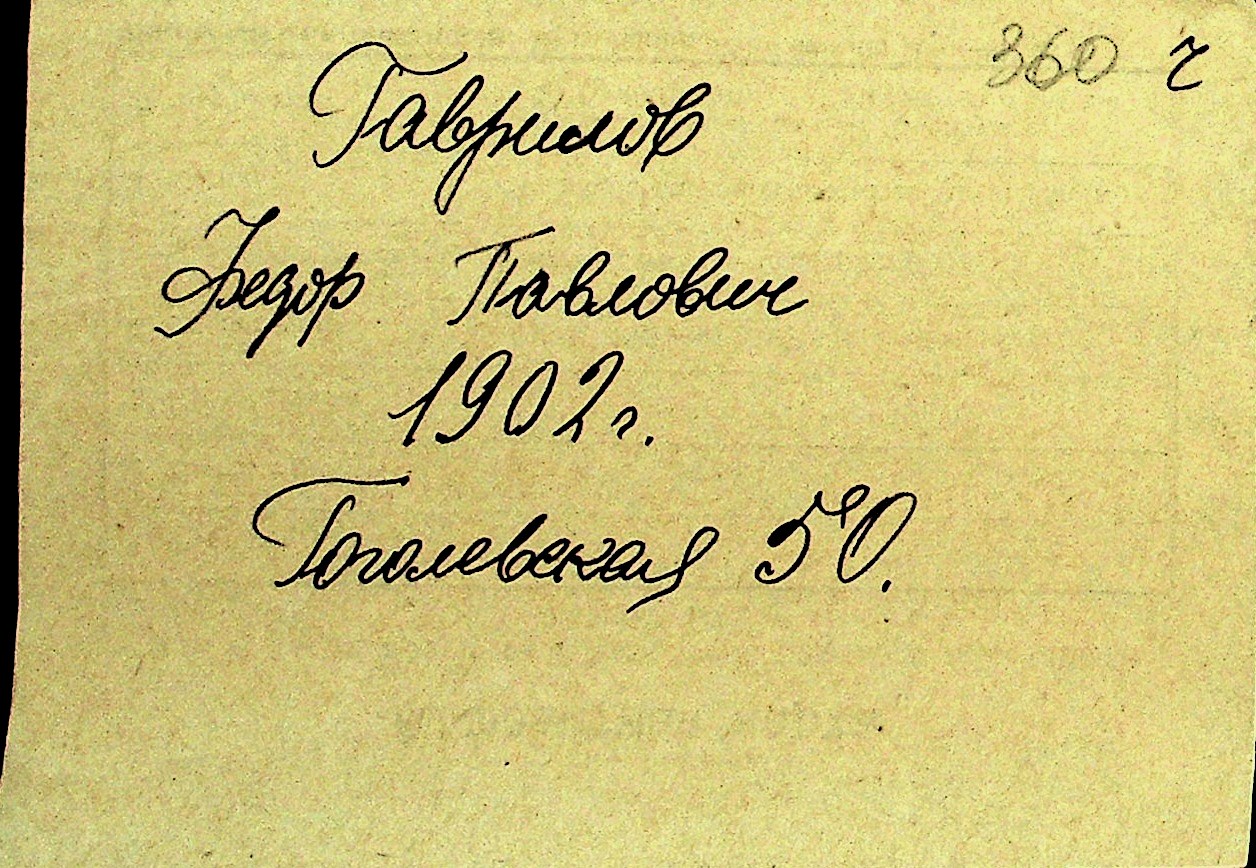 360 ч
Гаврилов
Федор Павлович
1902 г.
Гоголевская 50.